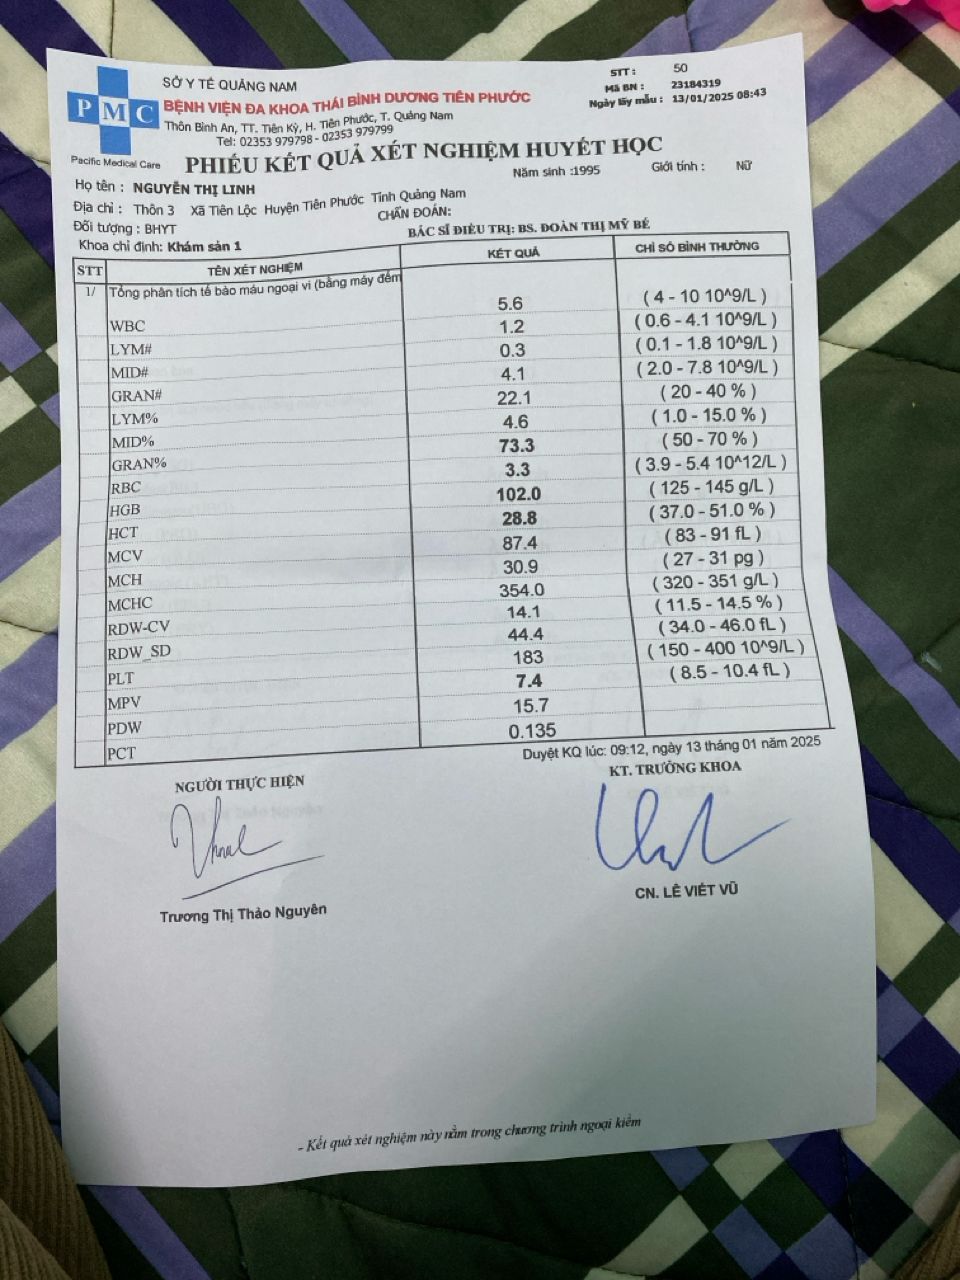 STT : 50
SỞ Y TẾ QUẢNG NAM
Mã BN : 23184319
PMC
BỆNH VIỆN ĐA KHOA THÁI BÌNH DƯƠNG TIÊN PHƯỚC
Ngày lấy mẫu : 13/01/2025 08:43
Thôn Bình An, TT. Tiên Kỳ, H. Tiên Phước, T. Quảng Nam
Tel: 02353 979798 - 02353 979799
Pacific Medical Care
PHIẾU KẾT QUẢ XÉT NGHIỆM HUYẾT HỌC
Họ tên : NGUYỄN THỊ LINH Năm sinh :1995 Giới tính : Nữ
Địa chỉ : Thôn 3 Xã Tiên Lộc Huyện Tiên Phước Tỉnh Quảng Nam
CHẨN ĐOÁN:
Đối tượng : BHYT
BÁC SĨ ĐIỀU TRỊ: BS. ĐOÀN THỊ MỸ BÉ
Khoa chỉ định: Khám sản 1
STT TÊN XÉT NGHIỆM KẾT QUẢ CHỈ SỐ BÌNH THƯỜNG
1/ Tổng phân tích tế bào máu ngoại vi (bằng máy đếm
WBC 5.6 ( 4 - 10 10^9/L )
LYM# 1.2 ( 0.6 - 4.1 10^9/L )
MID# 0.3 ( 0.1 - 1.8 10^9/L )
GRAN# 4.1 ( 2.0 - 7.8 10^9/L )
LYM% 22.1 ( 20 - 40 % )
MID% 4.6 ( 1.0 - 15.0 % )
GRAN% 73.3 ( 50 - 70 % )
RBC 3.3 ( 3.9 - 5.4 10^12/L )
HGB 102.0 ( 125 - 145 g/L )
HCT 28.8 ( 37.0 - 51.0 % )
MCV 87.4 ( 83 - 91 fL )
MCH 30.9 ( 27 - 31 pg )
MCHC 354.0 ( 320 - 351 g/L )
RDW-CV 14.1 ( 11.5 - 14.5 % )
RDW_SD 44.4 ( 34.0 - 46.0 fL )
PLT 183 ( 150 - 400 10^9/L )
MPV 7.4 ( 8.5 - 10.4 fL )
PDW 15.7
PCT 0.135
Duyệt KQ lúc: 09:12, ngày 13 tháng 01 năm 2025
NGƯỜI THỰC HIỆN KT. TRƯỞNG KHOA
Trương Thị Thảo Nguyên CN. LÊ VIẾT VŨ
- Kết quả xét nghiệm này nằm trong chương trình ngoại kiểm